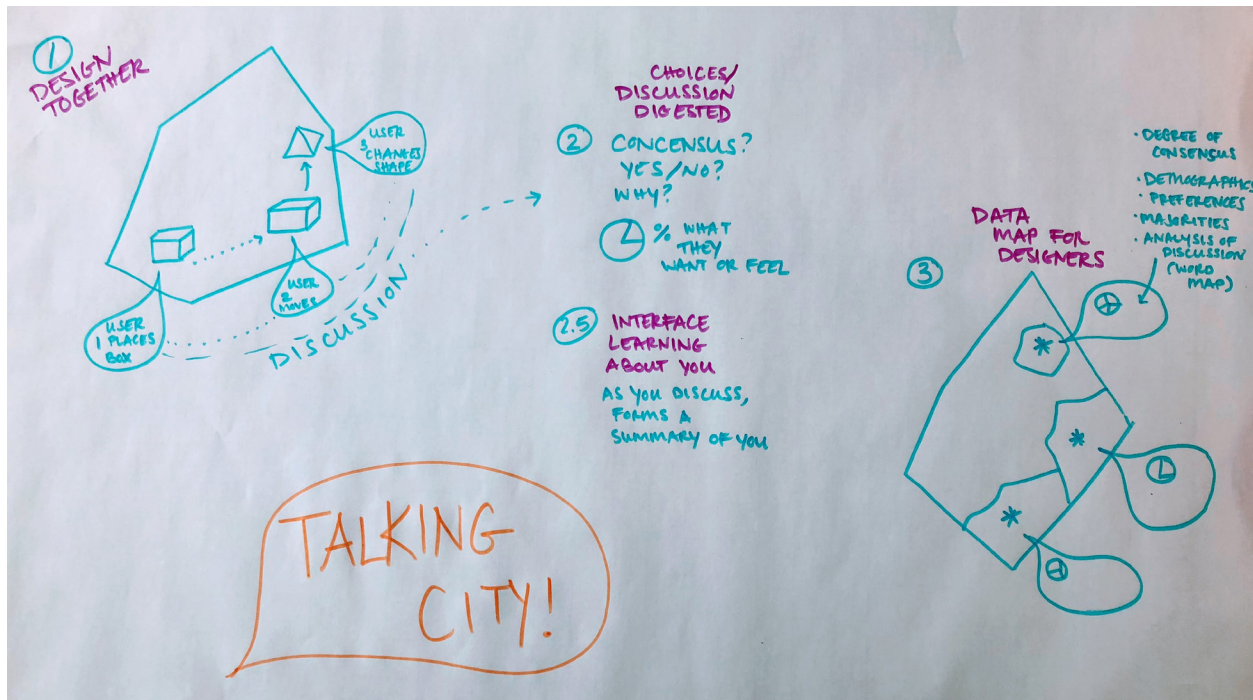 1
DESIGN
TOGETHER
USER
3
CHANGES
SHAPE
USER
2
MOVES
USER
1 PLACES
BOX
DISCUSSION
CHOICES/
DISCUSSION
DIGESTED
2 CONCENSUS?
YES/NO?
WHY?
% WHAT
THEY
WANT OR FEEL
2.5 INTERFACE
LEARNING
ABOUT YOU
AS YOU DISCUSS,
FORMS A
SUMMARY OF YOU
3
DATA
MAP FOR
DESIGNERS
• DEGREE OF
CONSENSUS
• DEMOGRAPHICS
• PREFERENCES
• MAJORITIES
• ANALYSIS OF
DISCUSSION
(WORD
MAP)
TALKING
CITY!